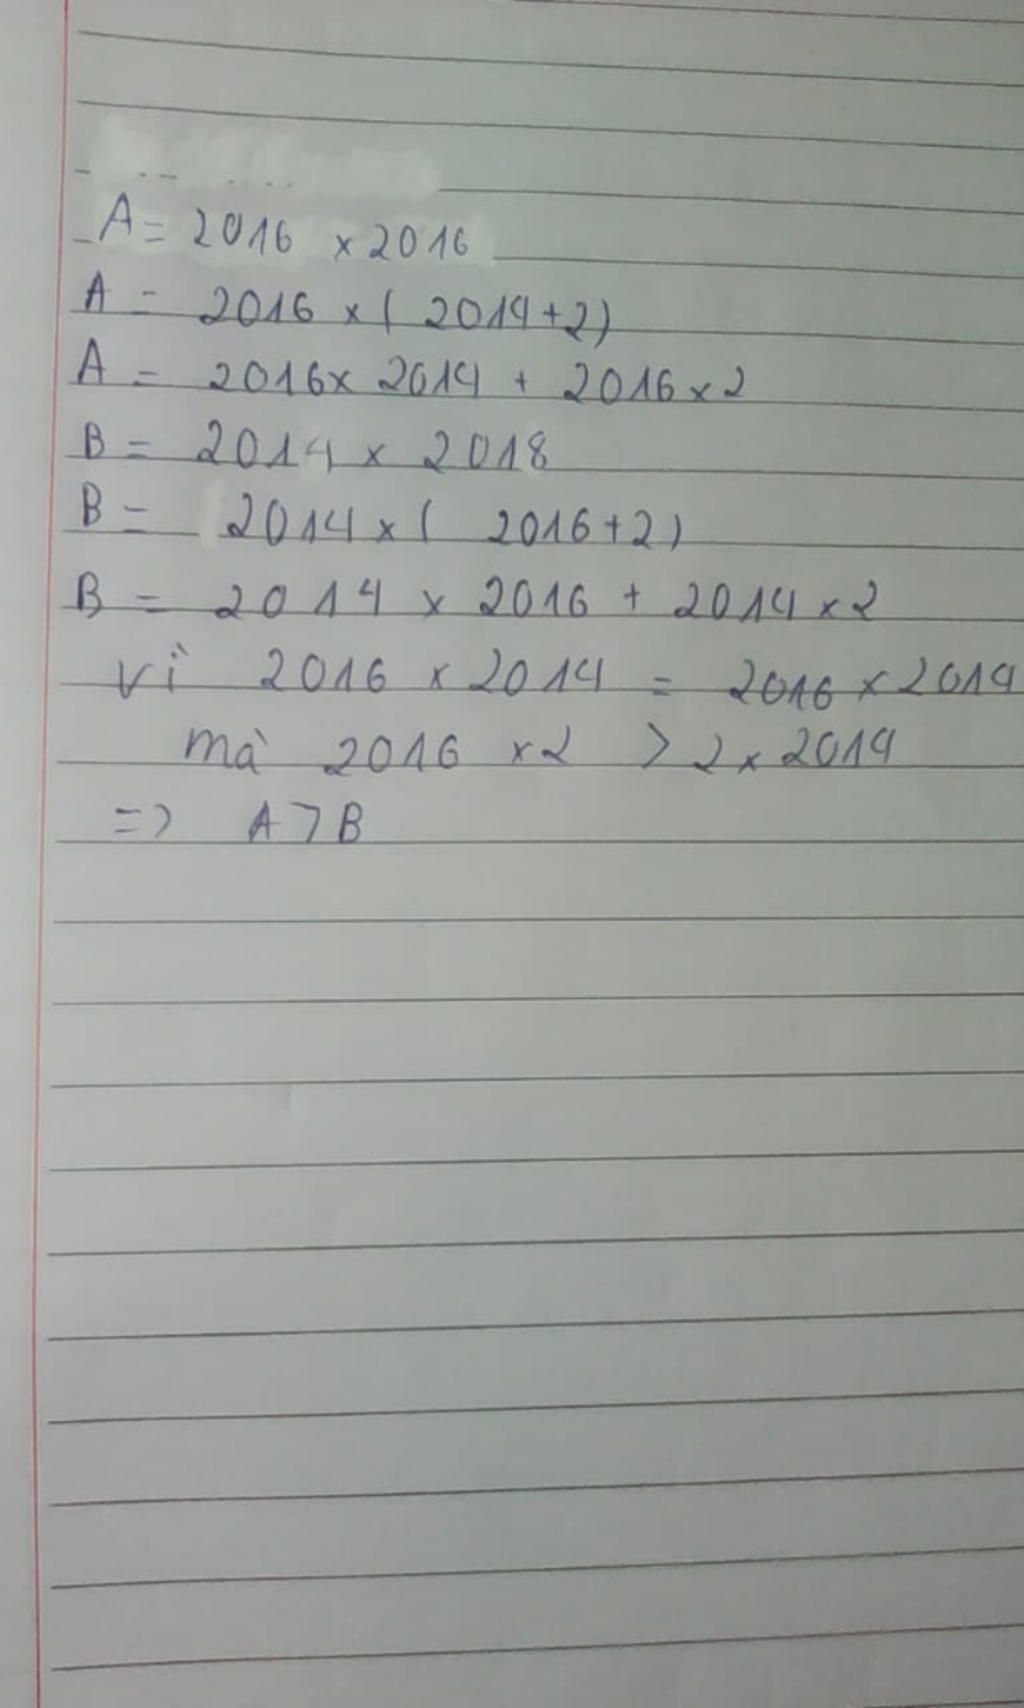 A = 2016 x 2016
A = 2016 x ( 2014+2)
A = 2016x 2014 + 2016 x 2
B = 2014 x 2018
B = 2014 x ( 2016+2)
B = 2014 x 2016 + 2014 x 2
Vì 2016 x 2014 = 2016 x 2014
mà 2016 x2 > 2 x 2014
=> A > B